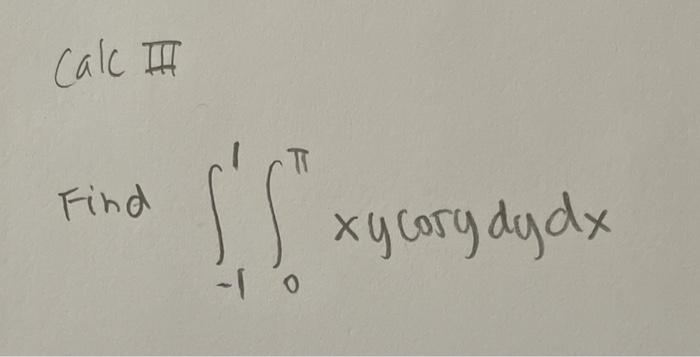 Calc III
Find ∫_{-1}^{1} ∫_{0}^{π} xy cosy dy dx